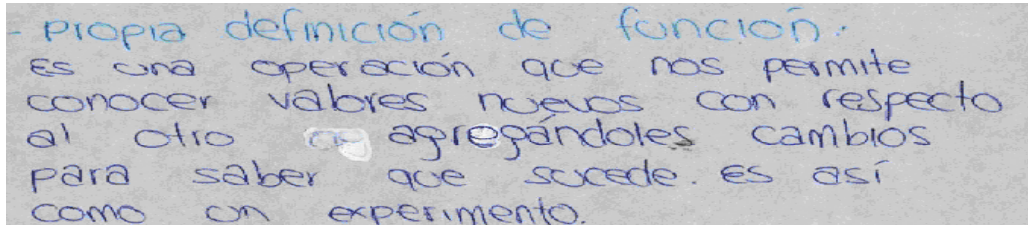 - Propia definición de función.
Es una operación que nos permite
conocer valores nuevos con respecto
al otro agregándoles cambios
para saber que sucede. Es así
como un experimento.